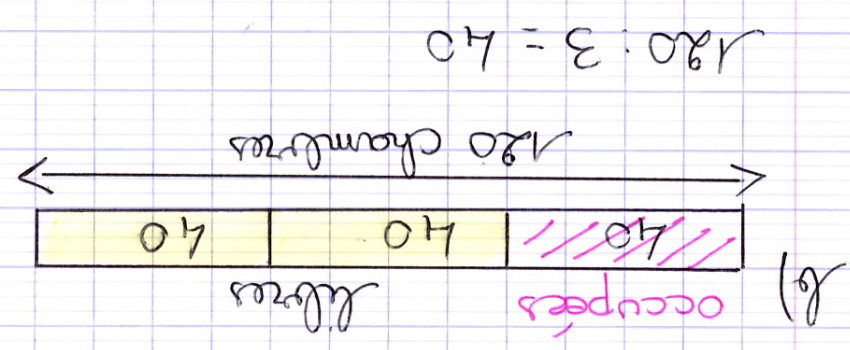 b) occupées libres
40 40 40
120 chambres
120 : 3 = 40